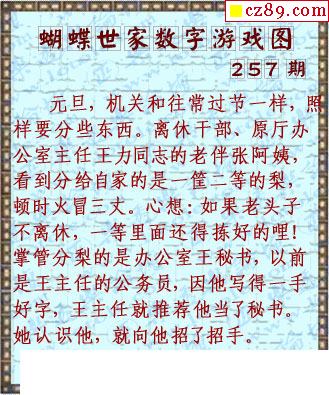 cz89.com
蝴蝶世家数字游戏图
257期
元旦，机关和往常过节一样，照
样要分些东西。离休干部、原厅办
公室主任王力同志的老伴张阿姨，
看到分给自家的是一筐二等的梨，
顿时火冒三丈。心想：如果老头子
不离休，一等里面还得拣好的哩！
掌管分梨的是办公室王秘书，以前
是王主任的公务员，因他写得一手
好字，王主任就推荐他当了秘书。
她认识他，就向他招了招手。